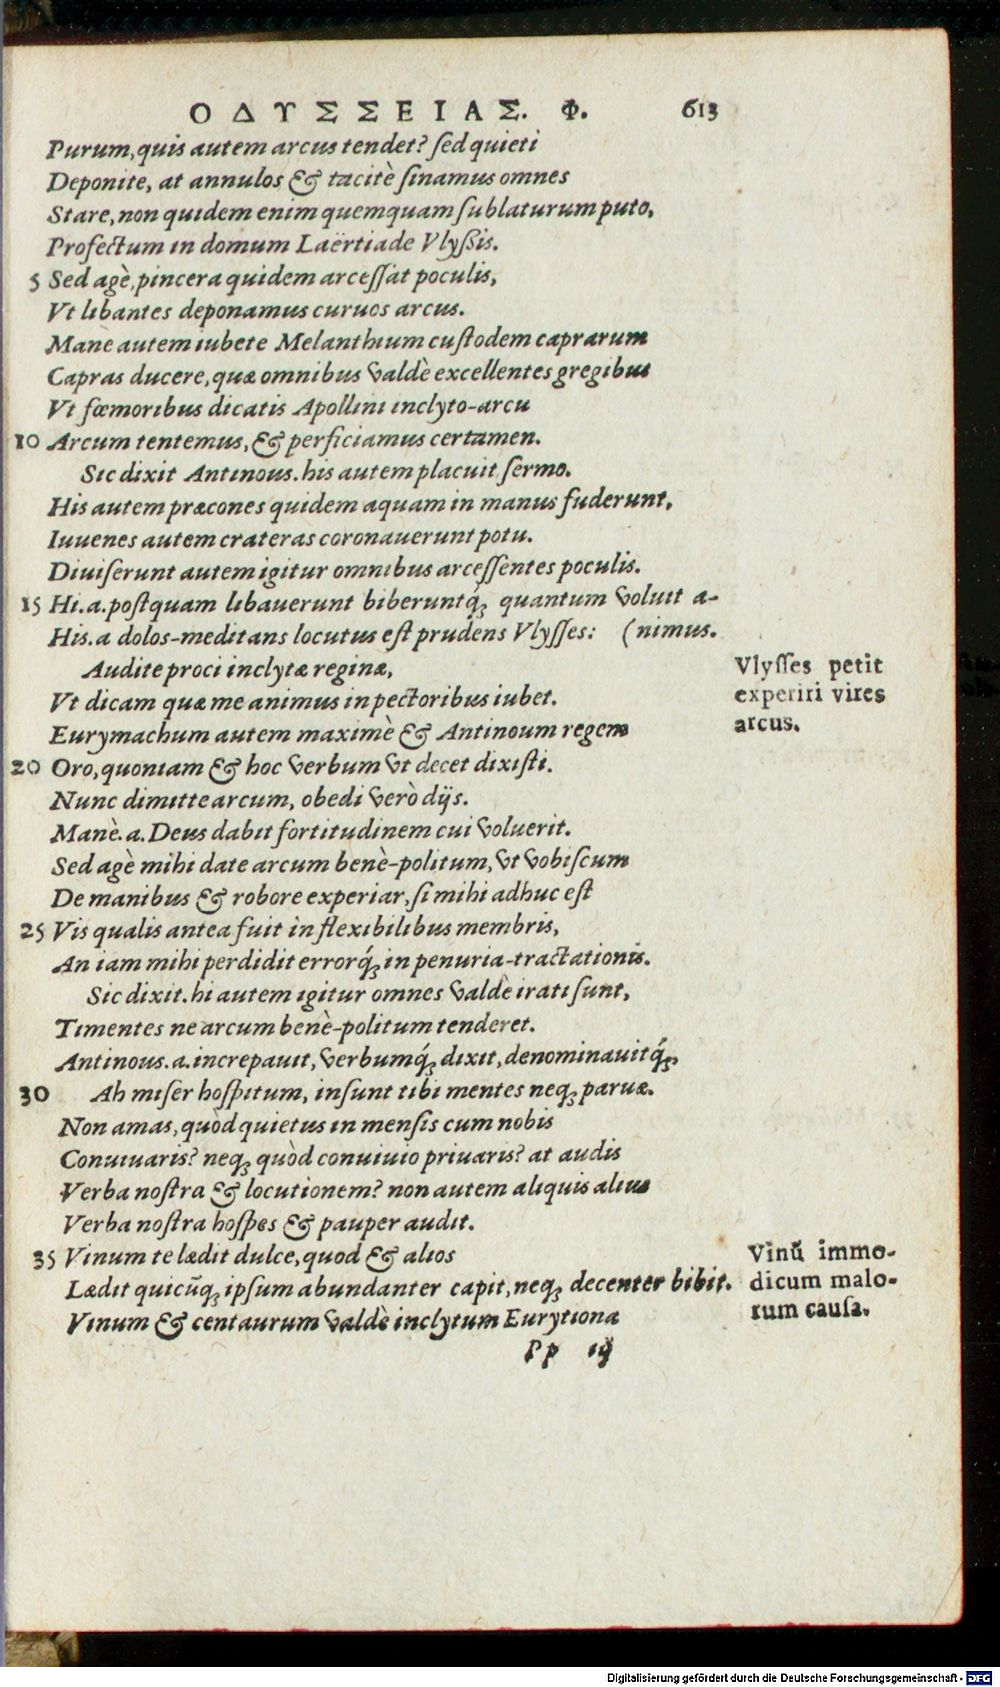 ΟΔΥΣΣΕΙΑΣ. Φ. 613
Purum, quis autem arcus tendet? sed quieti
Deponite, at annulos & tacitè sinamus omnes
Stare, non quidem enim quemquam sublaturum puto,
Profectum in domum Laërtiade Vlyßis.
5 Sed agè, pincera quidem arcessat poculis,
Vt libantes deponamus curuos arcus.
Mane autem iubete Melanthium custodem caprarum
Capras ducere, quæ omnibus valdè excellentes gregibus
Vt fœmoribus dicatis Apollini inclyto-arcu
10 Arcum tentemus, & perficiamus certamen.
Sic dixit Antinous. his autem placuit sermo.
His autem præcones quidem aquam in manus fuderunt,
Iuuenes autem crateras coronauerunt potu.
Diuiserunt autem igitur omnibus arcessentes poculis.
15 Hi .a. postquam libauerunt biberuntq́; quantum voluit a-
His .a dolos-meditans locutus est prudens Vlysses: (nimus.
Audite proci inclytæ reginæ,
Vlysses petit
experiri vires
arcus.
Vt dicam quæ me animus in pectoribus iubet.
Eurymachum autem maximè & Antinoum regem
20 Oro, quoniam & hoc verbum vt decet dixisti.
Nunc dimitte arcum, obedi verò dijs.
Manè .a. Deus dabit fortitudinem cui voluerit.
Sed agè mihi date arcum benè-politum, vt vobiscum
De manibus & robore experiar, si mihi adhuc est
25 Vis qualis antea fuit in flexibilibus membris,
An iam mihi perdidit errorq́; in penuria-tractationis.
Sic dixit. hi autem igitur omnes valdè irati sunt,
Timentes ne arcum benè-politum tenderet.
Antinous .a. increpauit, verbumq́; dixit, denominauitq́;,
30 Ah miser hospitum, insunt tibi mentes neq; paruæ.
Non amas, quòd quietus in mensis cum nobis
Conuiuaris? neq; quòd conuiuio priuaris? at audis
Verba nostra & locutionem? non autem aliquis alius
Verba nostra hospes & pauper audit.
35 Vinum te lædit dulce, quod & alios
Vinū immo-
dicum malo-
rum causa.
Lædit quicūq; ipsum abundanter capit, neq; decenter bibit.
Vinum & centaurum valdè inclytum Eurytiona
Pp iij
Digitalisierung gefördert durch die Deutsche Forschungsgemeinschaft - DFG